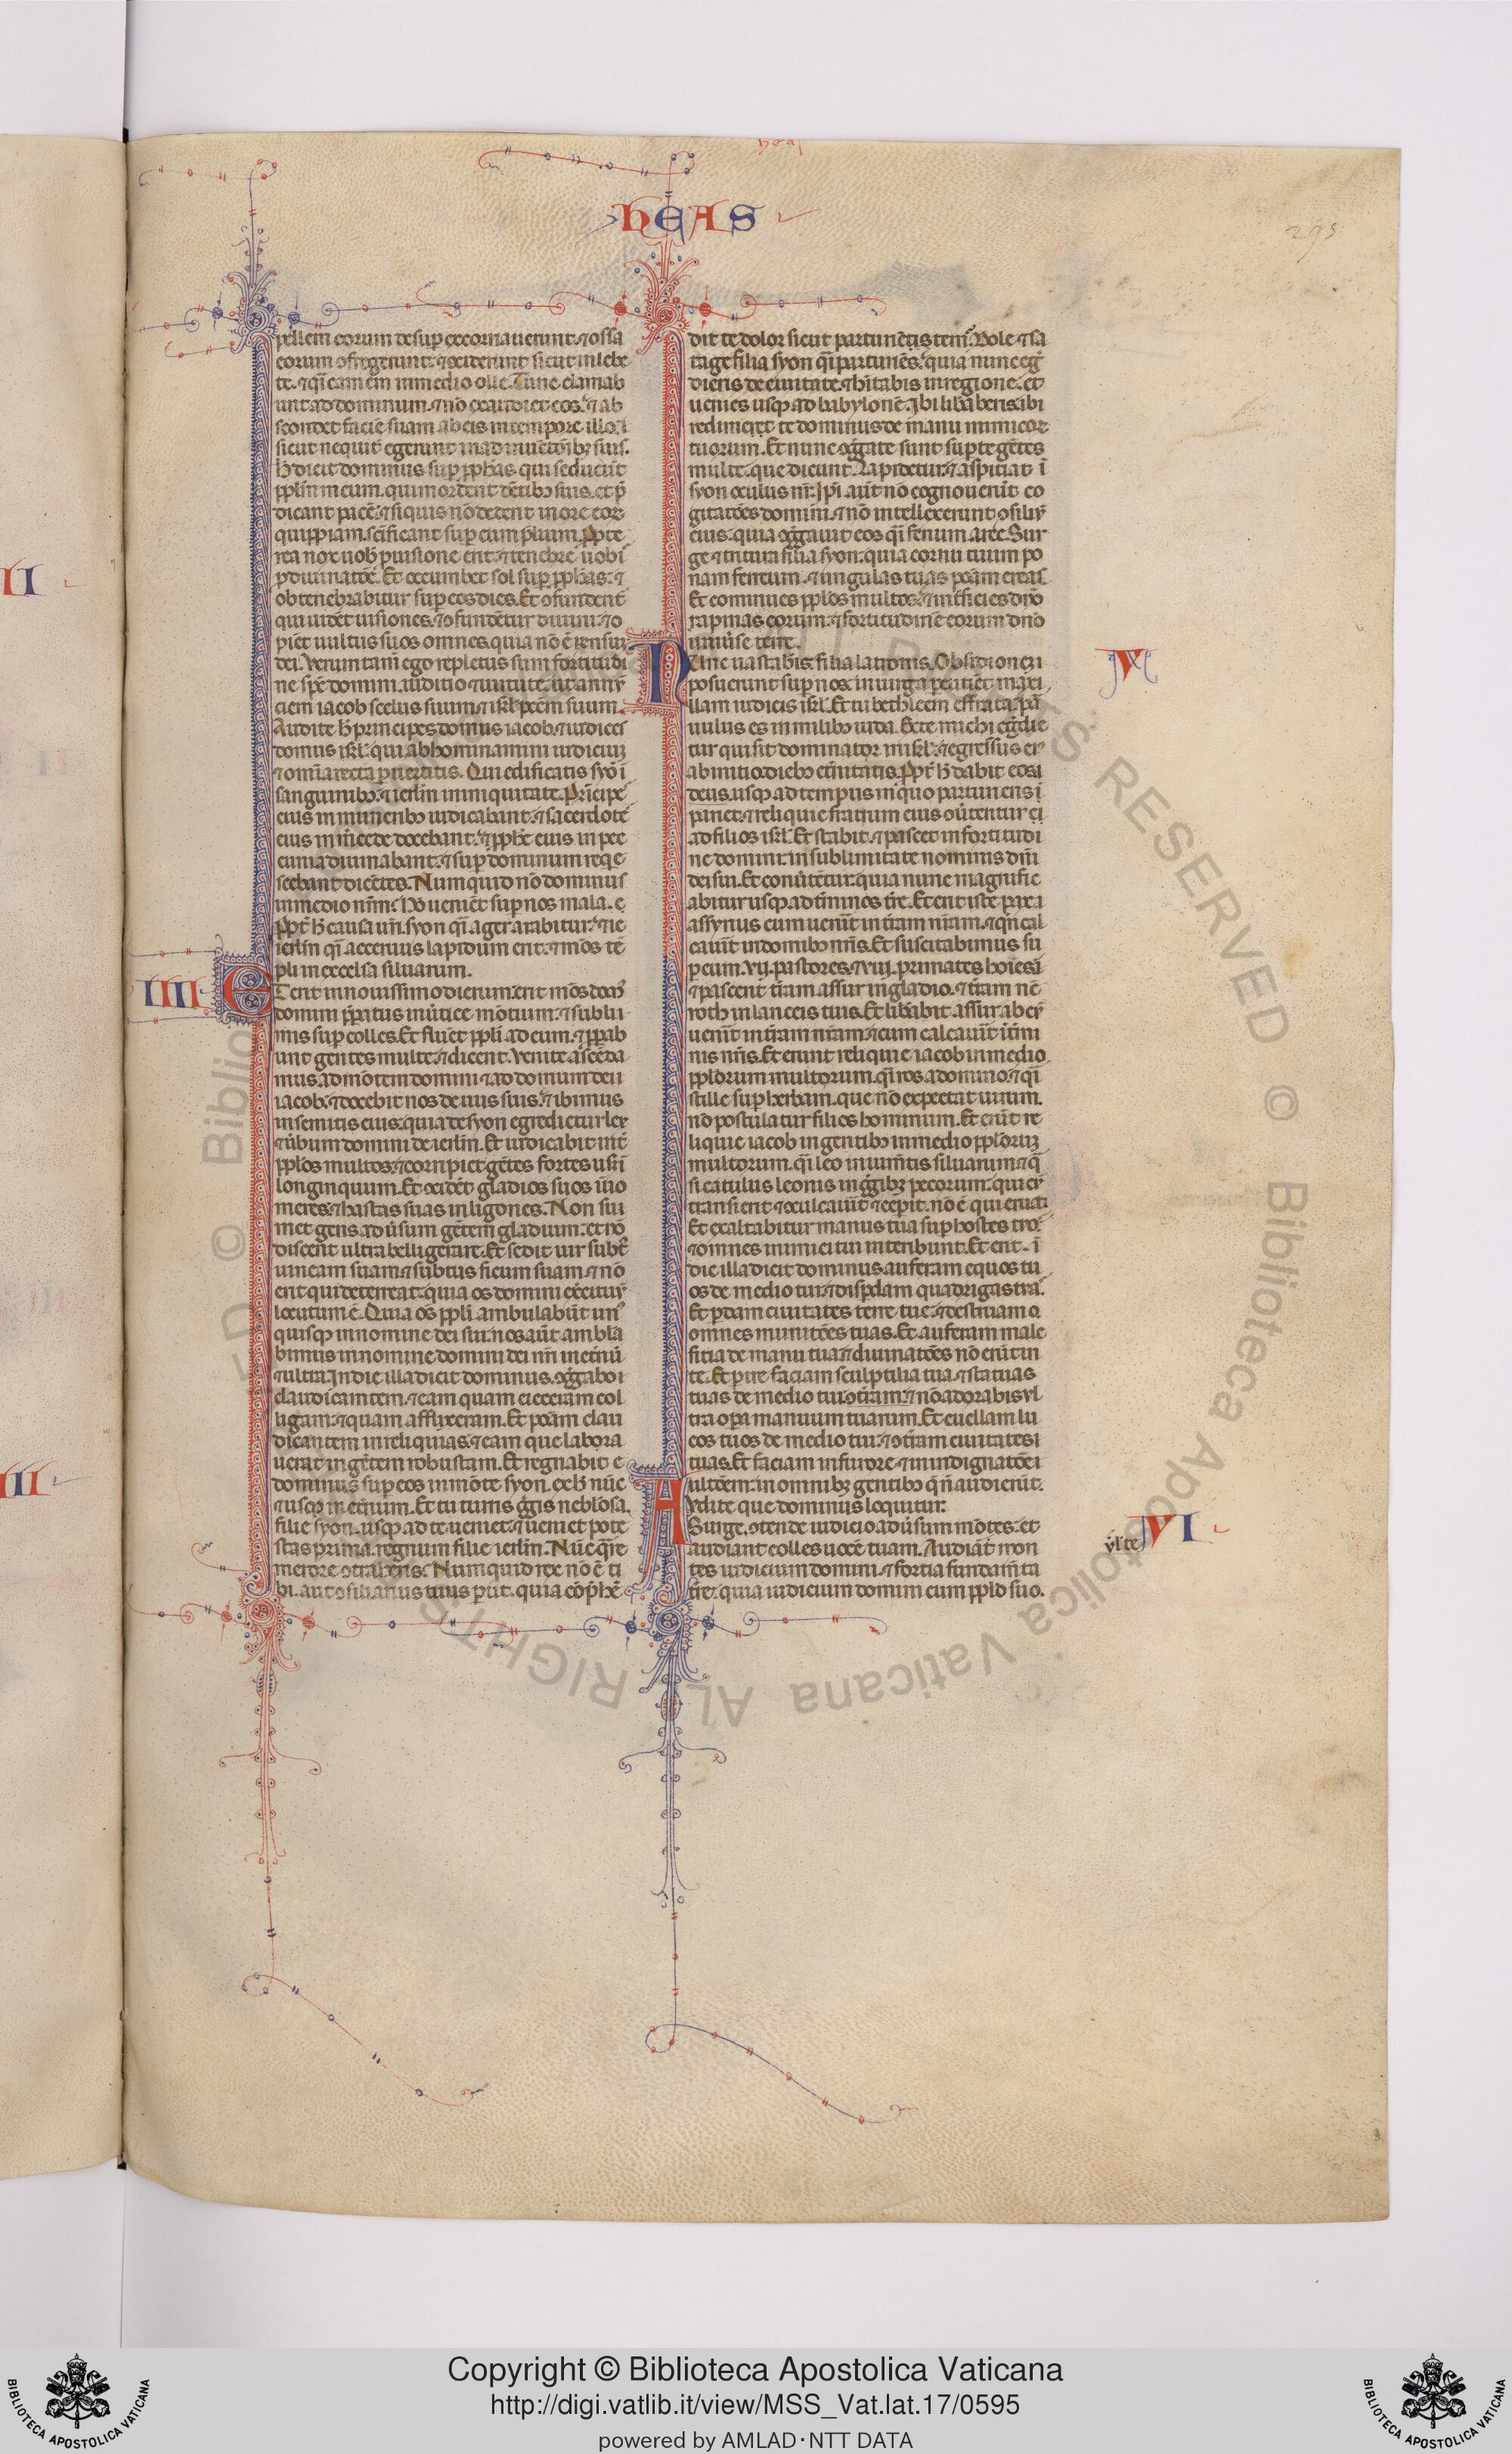 HEAS
295
pellem eorum desuṕ excoriauerunt. ⁊ ossa
eorum ꝯfregerunt. ⁊ ꝯciderunt sicut in lebe
te. ⁊ qͥ carnem in medio olle. Tunc clamab
unt ad dominum. ⁊ nō exaudiet eos. ⁊ ab
scondet faciē suam ab eis in tempore illo.
sicut nequit̄ egerunt in adinuētōibꝫ suis.
h̄ dicit dominus suṕ ꝓph̄as qui seducūt
ppl̄m meum. qui mordent dētibꝰ suis. et p̄
dicant pacē. ⁊ siquis nō dederit in ore eor
quippiam. sc̄ificant suṕ eum p̄lium. Ꝓpte
rea nox uob̄ ꝓ uisione erit. ⁊ tenebre uobi
ꝓ diuinatōe. Et occumbet sol suṕ ꝓph̄as. ⁊
obtenebrabitur suṕ eos dies. Et ꝯfundent̄
qui uidēt uisiones. ⁊ ꝯfundētur diuini. ⁊ o
pient uultus suos omnes. quia nō ē rensum
dei. Verum tam̄ ego repletus sum fortitudi
ne sṕc domini. iuditio ⁊ uirtute. ut annū
ciem iacob scelus suum. ⁊ isrl̄ pccm̄ suum.
Audite h̄ principes domus iacob. ⁊ iudices
domus isrl̄. qui abhominamini iudiciuꝫ
⁊ omīa recta puertitis. Qui edificatis syō ī
sanguinibꝰ. ⁊ ierl̄m in iniquitate. Prīcipe
eius in muneribꝰ iudicabant. ⁊ sacerdote
eius in m̄cede docebant. ⁊ ꝓph̄e eius in pec
cunia diuinabant. ⁊ suṕ dominum reqͥe
scebant dicētes. Numquid nō dominus
in medio nr̄m. Nō ueniēt suṕ nos mala.
Ꝓpt̄ h̄ causa ur̄i. syon qͥ ager arabitur. ⁊ ie
ierl̄m qͥ aceruus lapidum erit. ⁊ mōs tē
pli in excelsa siluarum.
IIII
ET erit in nouissimo dierum. erit mōs dom̄
domini ṕpatus in ūtice mōtium. ⁊ subli
mis suṕ colles. Et fluēt ppl̄i ad eum. ⁊ ꝓꝑab
unt gentes multe. ⁊ dicent. Venite ascēda
mus ad mōtem domini ⁊ ad domum dei
iacob. ⁊ docebit nos de uiis suis. ⁊ ibimus
in semitis eius. quia de syon egredietur lex
⁊ ūbum domini de ierl̄m. Et iudicabit int̄
ppl̄os multos. ⁊ corripiet gētes fortes usꝫ ī
longinquum. Et ꝯcidēt gladios suos ī uo
meres. ⁊ hastas suas in ligones. Non su
met gens aduersum gētem gladium. et nō
discent ultra belligerare. Et sedit uir subt̄
uineam suam. ⁊ subtus ficum suam. ⁊ nō
erit qui deterreat. quia os domini exercituū
locutum ē. Quia oēs ppl̄i ambulabūt un
quisqꝫ in nomine dei sui. nos aūt ambla
bimus in nomine domini dei nr̄i in etnū
⁊ ultra. In die illa dicit dominus. ꝯg̑gabo
claudicantem. ⁊ eam quam eieceram col
ligam. ⁊ quam afflixeram. Et ponam clau
dicantem in reliquias. ⁊ eam que labora
uerat in gētem robustam. Et regnabit
dominus suṕ eos in mōte syon. ex h̄ nūc
⁊ usqꝫ in et̄num. Et tu turris g̑gis neblosa.
filie syon. usqꝫ ad te ueniet. ⁊ ueniet pote
stas prima. regnum filie ierl̄m. Nūc qͣre
merore ꝯtraheris. Numquid rex nō ē ti
bi. aut ꝯsiliarius tuus ṕiit. quia cōp̄hē
dit te dolor sicut parturiētis tem̄. Dole ⁊ sa
tage filia syon qͥ parturiēs. quia nunc eg̑
dieris de ciuitate. ⁊ hītabis in regione. et
uenies usqꝫ ad babylonē. Ibi libaberis. ibi
redimet te dominus de manu inimicor
tuorum. Et nunc ꝯg̑gate sunt suṕ te gētes
multe. que dicunt. Lapidetur. ⁊ aspitiat ī
syon oculus nr̄. Ip̄i aūt nō cognouerūt co
gitatōes domini. ⁊ nō intellexerunt ꝯsiliū
eius. quia ꝯg̑gauit eos qͥ fenum aree. Sur
ge ⁊ tritura filia syon. quia cornu tuum po
nam ferreum. ⁊ ungulas tuas ponam ereas.
Et cominues ppl̄os multos. ⁊ int̄ficies dn̄o
rapinas eorum. ⁊ fortitudinē eorum dn̄o
uniūse terre.
V
NUnc uastab̄is filia latronis. Obsidionem
posuerunt suṕ nos. in uirga ṕcutiēt maxi
llam iudicis isrl̄. Et tu bethleem effrata. pa
uulus es in milibꝰ iuda. Ex te michi eg̑die
tur qui sit dominator in isrl̄. ⁊ egressus eiꝰ
ab initio. diebꝰ et̄nitatis. Ꝓpt̄ h̄ dabit eos
deus. usqꝫ ad tempus in quo parturiens
pariet. ⁊ reliquie fratrum eius cōūtentur
ad filios isrl̄. Et stabit. ⁊ pascet in fortitudi
ne domini. in sublimitate nominis dn̄i
dei sui. Et conūtētur. quia nunc magnific
abitur usqꝫ ad t̄minos tr̄e. Et erit iste pax.
assyrius cum uenīt in tr̄am nr̄am. ⁊ qn̄ cal
cauīt in domibꝰ nr̄is. Et suscitabimus su
ṕ eum. vij. pastores. ⁊ viij. primates hoīes
⁊ pascent tr̄am assur in gladio. ⁊ tr̄am nē
roth in lanceis eius. Et libabit ab assur. cum
uenīt in tr̄am nr̄am. ⁊ cum calcauīt in t̄mi
nis nr̄is. Et erunt reliquie iacob in medio
ppl̄orum multorum. qͥ ros a domino. ⁊ qͥ
stille suṕ herbam. que nō expectat uirum.
nō postulatur filios hominum. Et erūt re
liquie iacob in gentibꝰ in medio ppl̄oruꝫ
multorum. qͥ leo in iumētis siluarum. ⁊ qͥ
si catulus leonis in g̑gibꝫ pecorum. qui cū
transierit ⁊ ꝯculcauīt ⁊ ceṕit. nō ē qui eruat.
Et exaltabitur manus tua suṕ hostes tuos
⁊ omnes inimici tui interibunt. Et erit ī
die illa dicit dominus auferam equos tu
os de medio tui. ⁊ disṕdam quadrigas tuas.
Et ṕdam ciuitates terre tue. ⁊ destruam
omnes munitōes tuas. Et auferam male
fitia de manu tua. ⁊ diuinatōes nō erūt in
te. Et ṕire faciam sculptilia tua. ⁊ statuas
tuas de medio tui ꝯt̄ram. ⁊ nō adorabis ul
tra oṕa manuum tuarum. Et euellam lu
cos tuos de medio tui. ⁊ ꝯt̄ram ciuitates
tuas. Et faciam in furore ⁊ in indignatōe
ultōem in omnibꝫ gentibꝰ q̄ nō audierūt.
AUdite que dominus loquitur.
VI
Surge. ꝯtende iudicio aduersum mōtes. et
audiant colles uocē tuam. Audiāt mon
tes iudicium domini. ⁊ fortia fundam̄ta
tr̄e. quia iudicium domini cum ppl̄o suo.
Copyright © Biblioteca Apostolica Vaticana
http://digi.vatlib.it/view/MSS_Vat.lat.17/0595
powered by AMLAD·NTT DATA
BIBLIOTECA APOSTOLICA VATICANA
BIBLIOTECA APOSTOLICA VATICANA